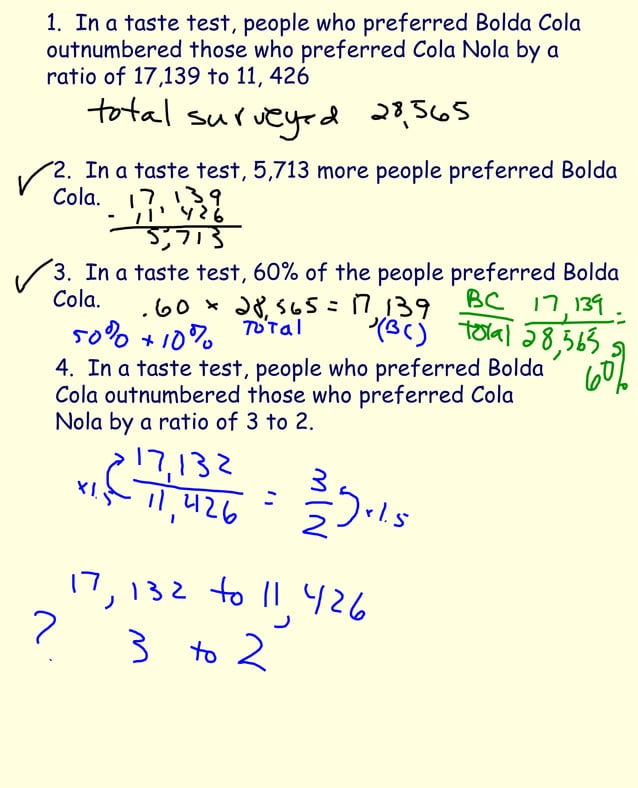 1. In a taste test, people who preferred Bolda Cola
outnumbered those who preferred Cola Nola by a
ratio of 17,139 to 11, 426
total surveyed 28,565
2. In a taste test, 5,713 more people preferred Bolda
Cola.
17,139
- 11,426
5,713
3. In a taste test, 60% of the people preferred Bolda
Cola.
.60 × 28,565 = 17,139
50% + 10% TOTal (BC)
BC 17,139 =
Total 28,565
60%
4. In a taste test, people who preferred Bolda
Cola outnumbered those who preferred Cola
Nola by a ratio of 3 to 2.
17,132 3
x1.5 = x1.5
11,426 2
17,132 to 11,426
? 3 to 2